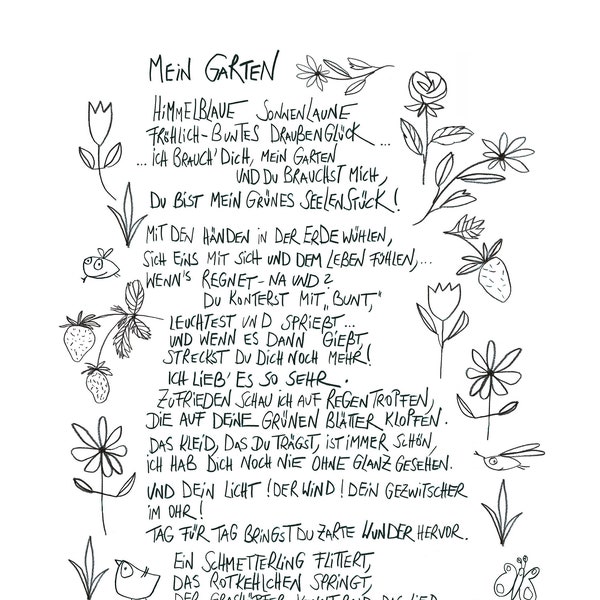 MEIN GARTEN
HIMMELBLAUE SONNENLAUNE
FRÖHLICH-BUNTES DRAUßENGLÜCK ...
... ICH BRAUCH' DICH, MEIN GARTEN
UND DU BRAUCHST MICH,
DU BIST MEIN GRÜNES SEELENSTÜCK!
MIT DEN HÄNDEN IN DER ERDE WÜHLEN,
SICH EINS MIT SICH UND DEM LEBEN FÜHLEN,...
WENN'S REGNET - NA UND?
DU KONTERST MIT „BUNT,"
LEUCHTEST UND SPRIEßT...
UND WENN ES DANN GIEßT,
STRECKST DU DICH NOCH MEHR!
ICH LIEB' ES SO SEHR.
ZUFRIEDEN SCHAU ICH AUF REGENTROPFEN,
DIE AUF DEINE GRÜNEN BLÄTTER KLOPFEN.
DAS KLEID, DAS DU TRÄGST, IST IMMER SCHÖN,
ICH HAB DICH NOCH NIE OHNE GLANZ GESEHEN.
UND DEIN LICHT! DER WIND! DEIN GEZWITSCHER
IM OHR!
TAG FÜR TAG BRINGST DU ZARTE WUNDER HERVOR.
EIN SCHMETTERLING FLITTERT,
DAS ROTKEHLCHEN SPRINGT,
DER GRASHÜPFER